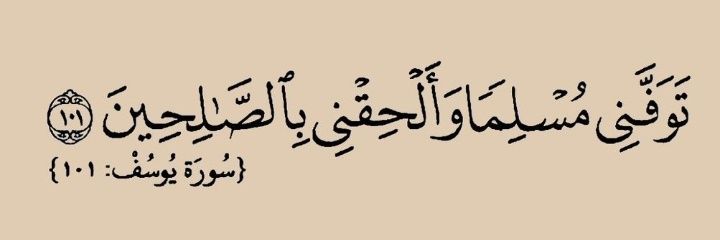 تَوَفَّنِى مُسْلِمًا وَأَلْحِقْنِى بِٱلصَّـٰلِحِينَ ١٠١
{سُورَة يُوسُفْ: ١٠١}